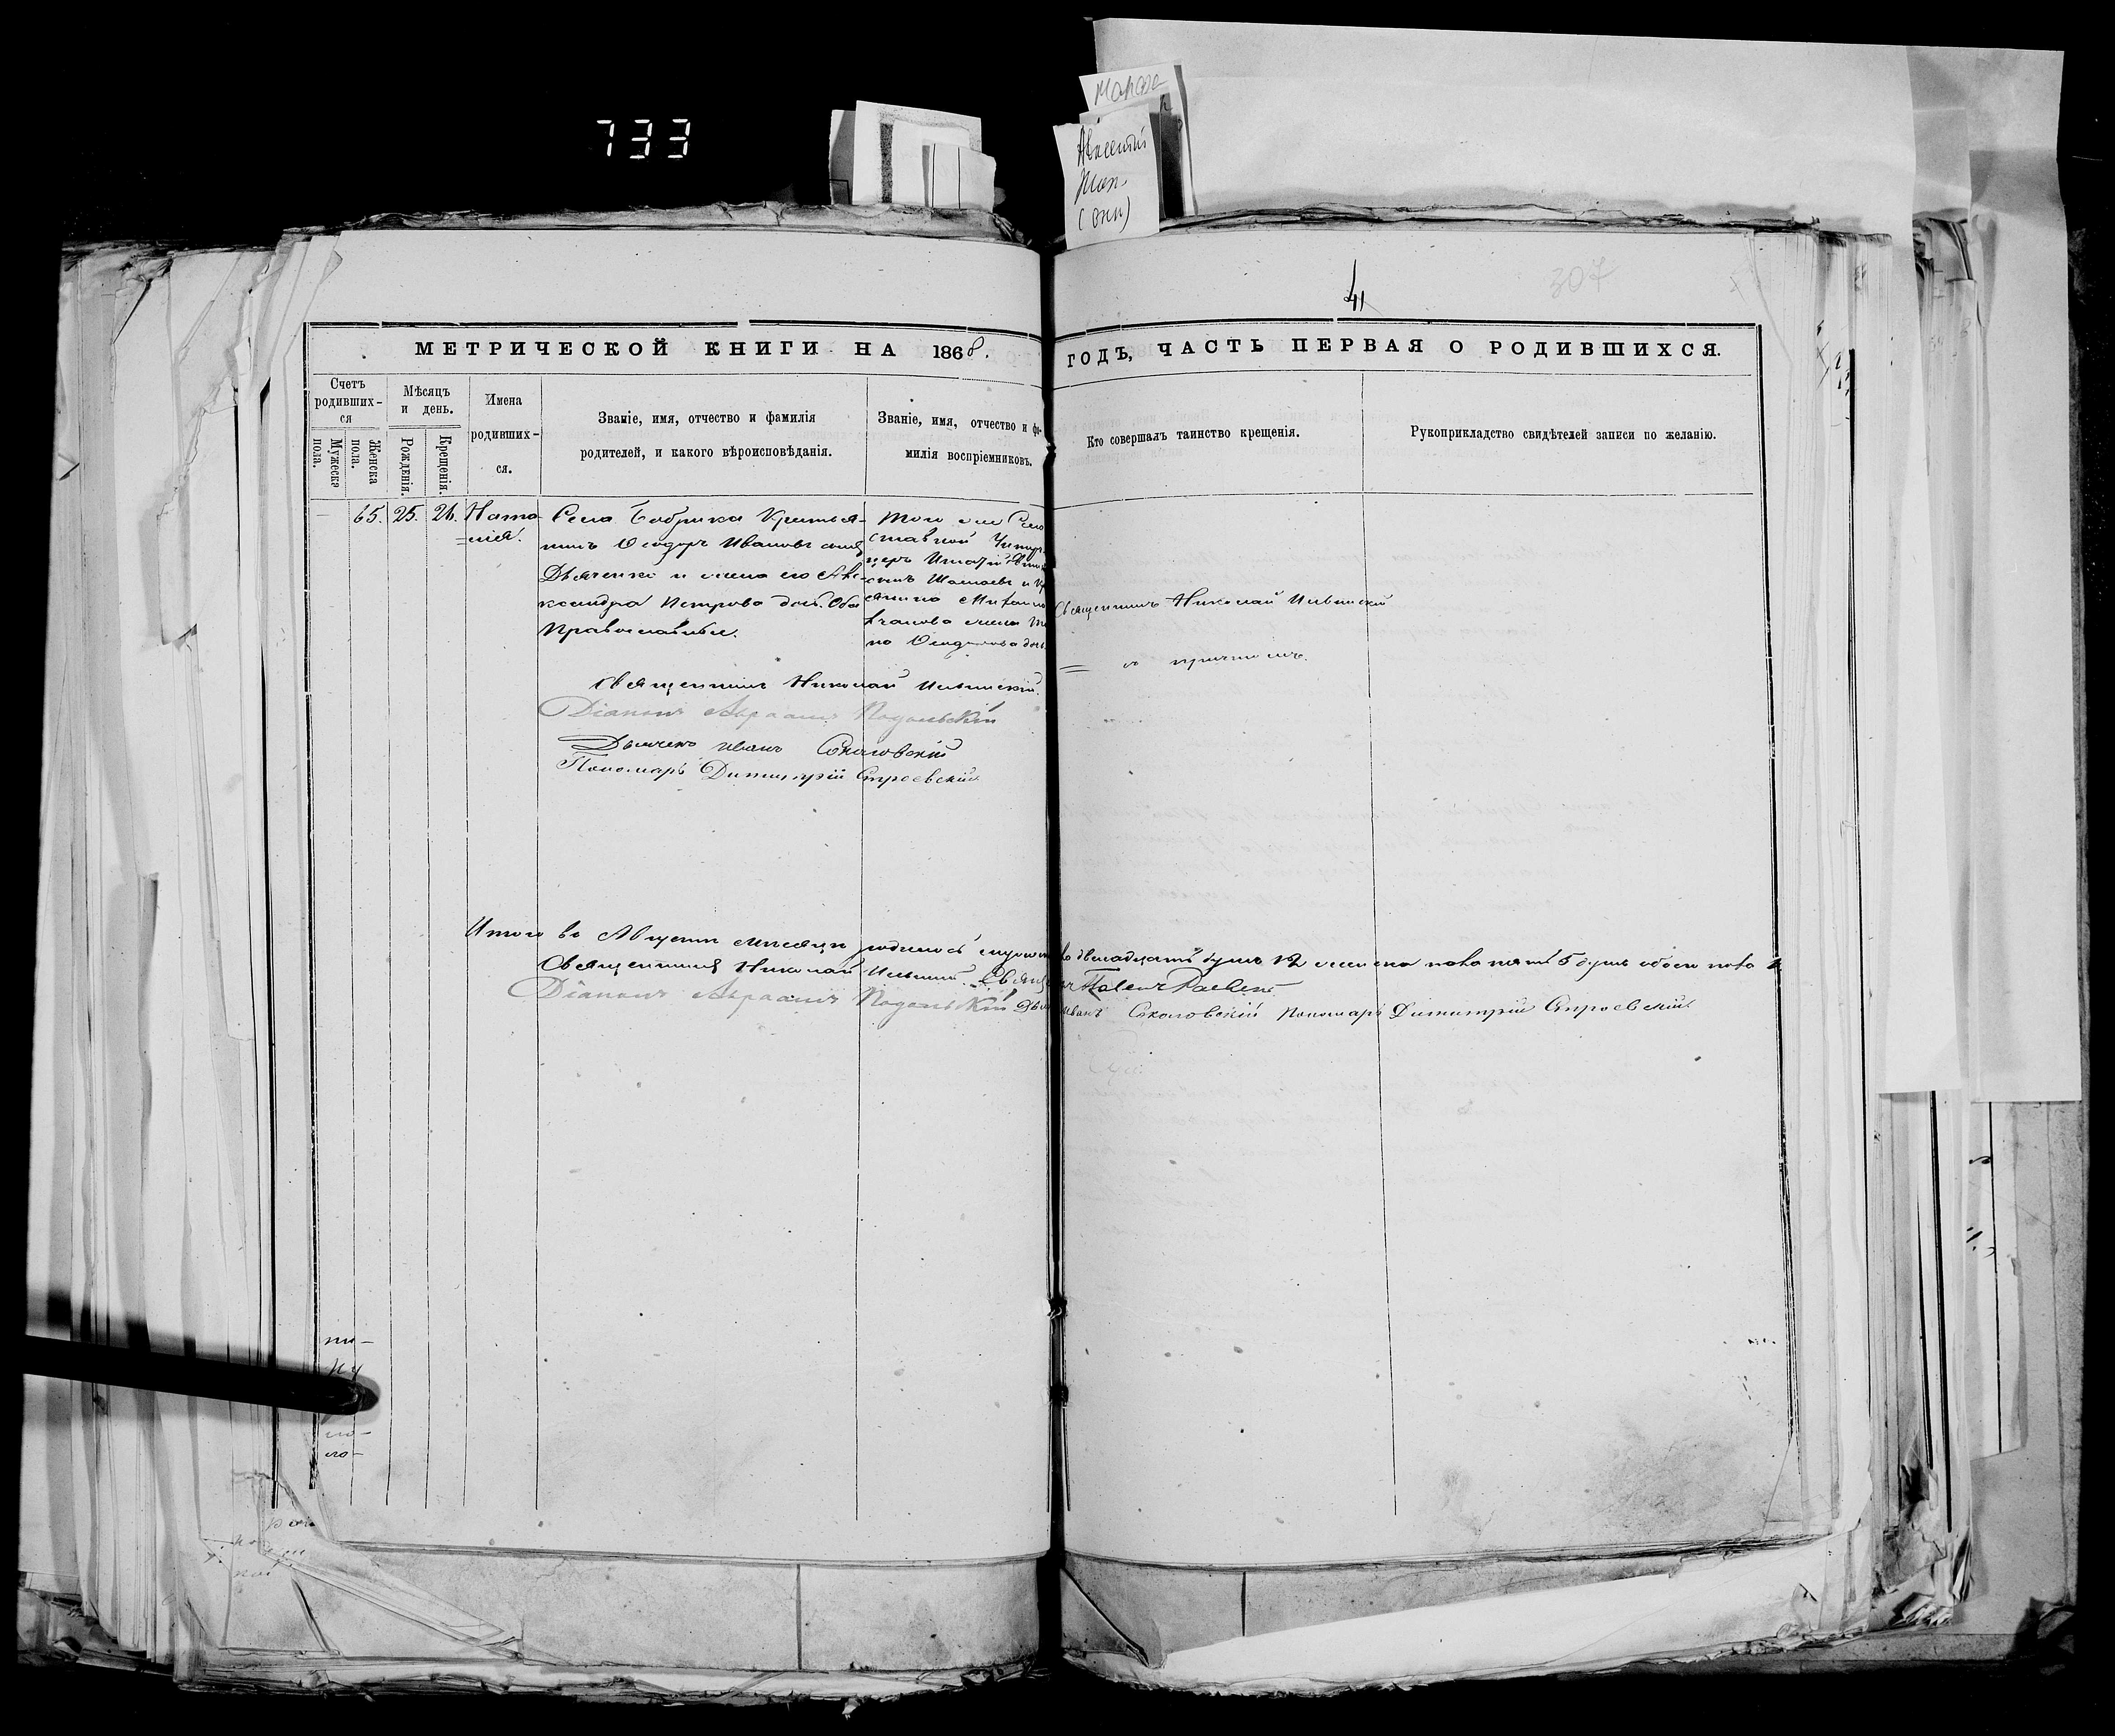 733
Мапсе
Алексей
(они)
41
307
МЕТРИЧЕСКОЙ КНИГИ НА 1868.
ГОДЪ, ЧАСТЬ ПЕРВАЯ О РОДИВШИХСЯ.
Счетъ родивших-ся
Мужеска пола.
Женска пола.
Мѣсяцъ и день.
Рожденія.
Крещенія.
Имена родивших-ся.
Званіе, имя, отчество и фамилія родителей, и какого вѣроисповѣданія.
Званіе, имя, отчество и фа-милія воспріемниковъ.
Кто совершалъ таинство крещенія.
Рукоприкладство свидѣтелей записи по желанію.
— 65. 25. 26. Ната-
=лія.
Села Бобрика Крестья-
нинъ Ѳеодоръ Ивановъ сынъ
Дьяченко и жена его Але-
ксандра Петрова дочь. Оба
Православные.
того же Села
ставной Унтеръ
церъ Игнатій
сынъ и Кр
Ѳеодорова дочь
Священникъ Николай Ильинскій
= съ причтомъ.
Священникъ Николай Ильинскій.
Діаконъ Авраамъ Подольскій
Дьячекъ Иванъ Соколовскій
Пономарь Димитрій Строевскій
Итого въ Августѣ мѣсяцѣ родилось мужеска двенадцать душъ 12 женска пола пять 5 душъ обоего пола
Священникъ Николай Ильинскій. Священникъ
Діаконъ Авраамъ Подольскій Иванъ Соколовскій Пономарь Димитрій Строевскій